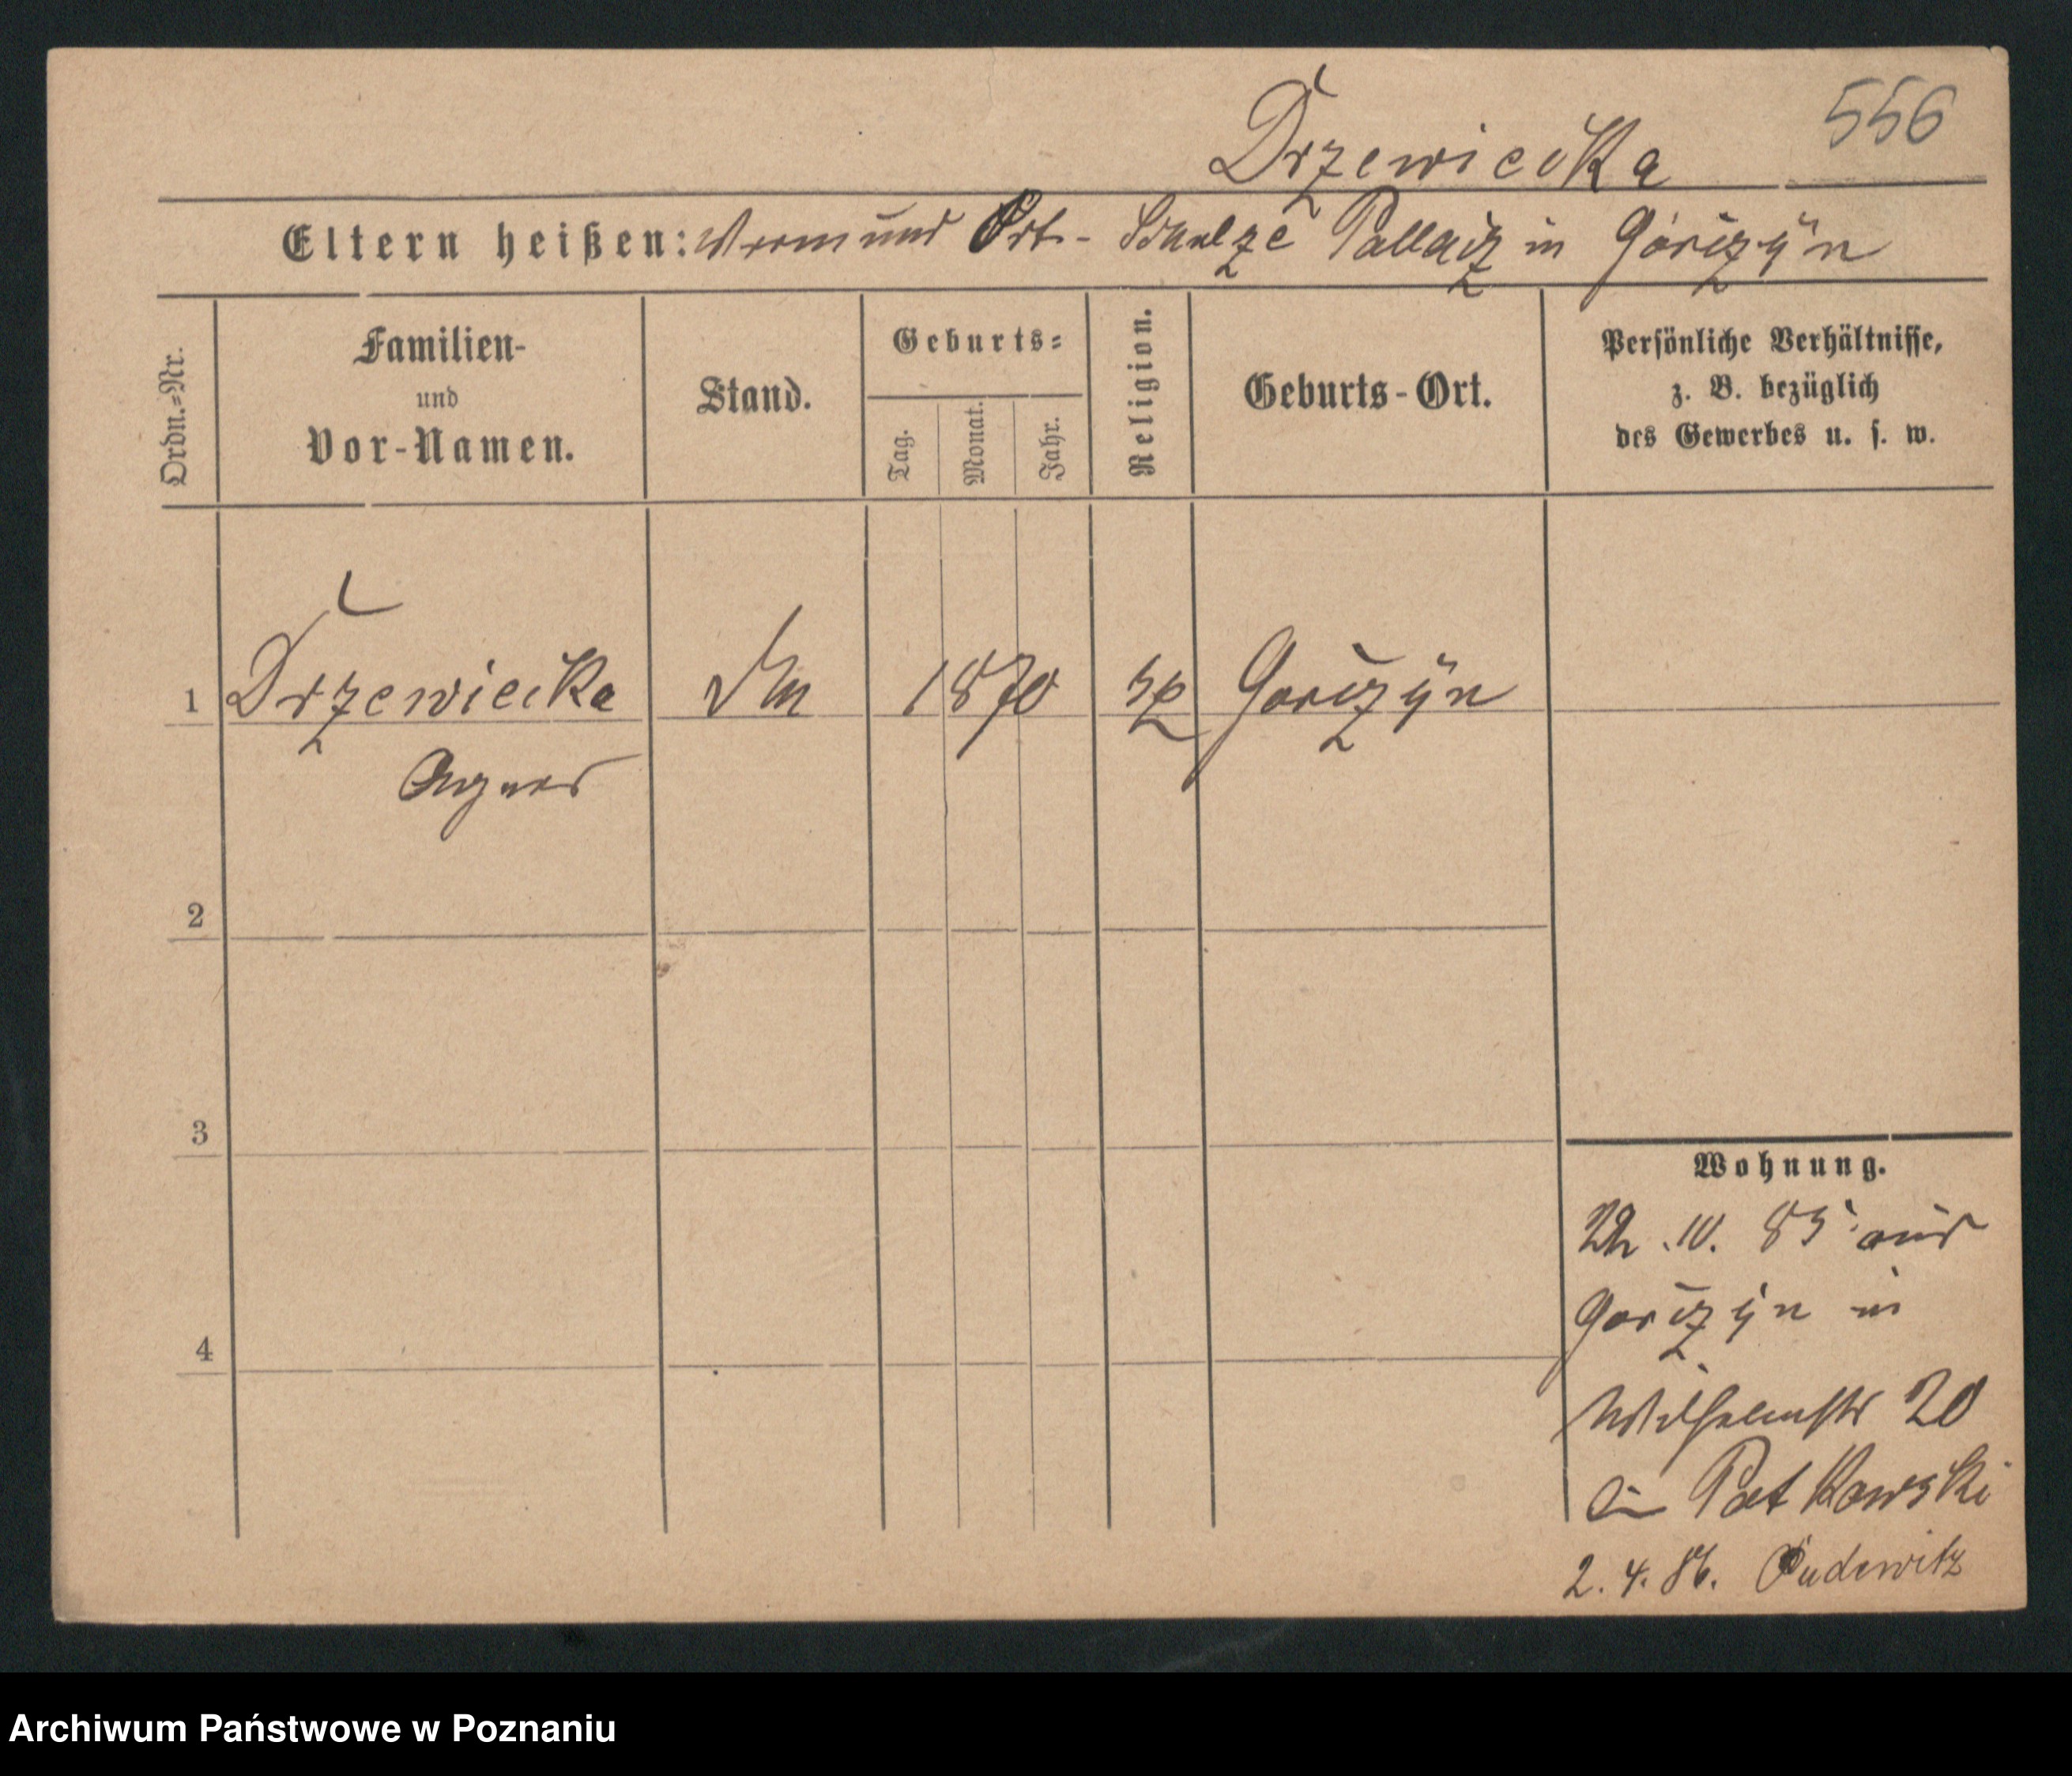 556
Drzewiecka
Eltern heißen: Vormund Ort-Schulze Pallacz in Górczyn
Ordn.=Nr.
Familien-
und
Vor-Namen.
Stand.
Geburts=
Tag.
Monat.
Jahr.
Religion.
Geburts-Ort.
Persönliche Verhältnisse,
z. B. bezüglich
des Gewerbes u. s. w.
1 Drzewiecka 1870 Gorczyn
Agnes
2
3
4
Wohnung.
22.10.85 aus
Gorczyn in
Wilhelmstr 20
Patkowski
2.4.86. Pudewitz
Archiwum Państwowe w Poznaniu